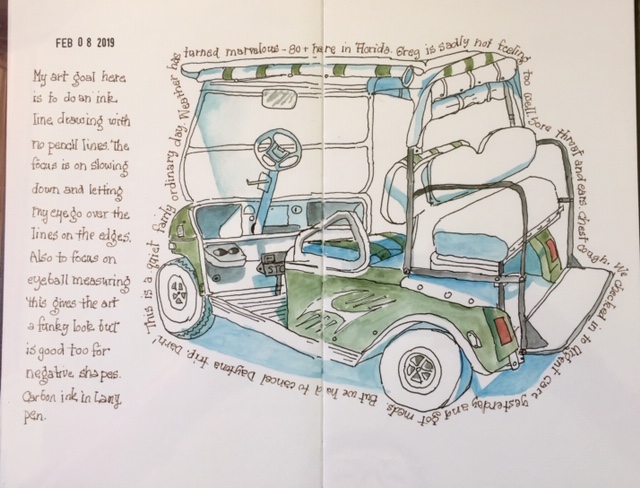 FEB 08 2019
My art goal here
is to do an ink
line drawing with
no pencil lines. The
focus is on slowing
down and letting
my eye go over the
lines on the edges.
Also to focus on
eyeball measuring
this gives the art
a funky look but
is good too for
negative shapes.
Carbon ink in Lamy
pen.
This is a quiet fairly ordinary day. Weather has turned marvelous - 80+ here in Florida. Greg is sadly not feeling too well. Sore throat and ears. Chest cough. We checked in to Urgent care yesterday and got meds. But we had to cancel Daytona trip. Darn!
STO